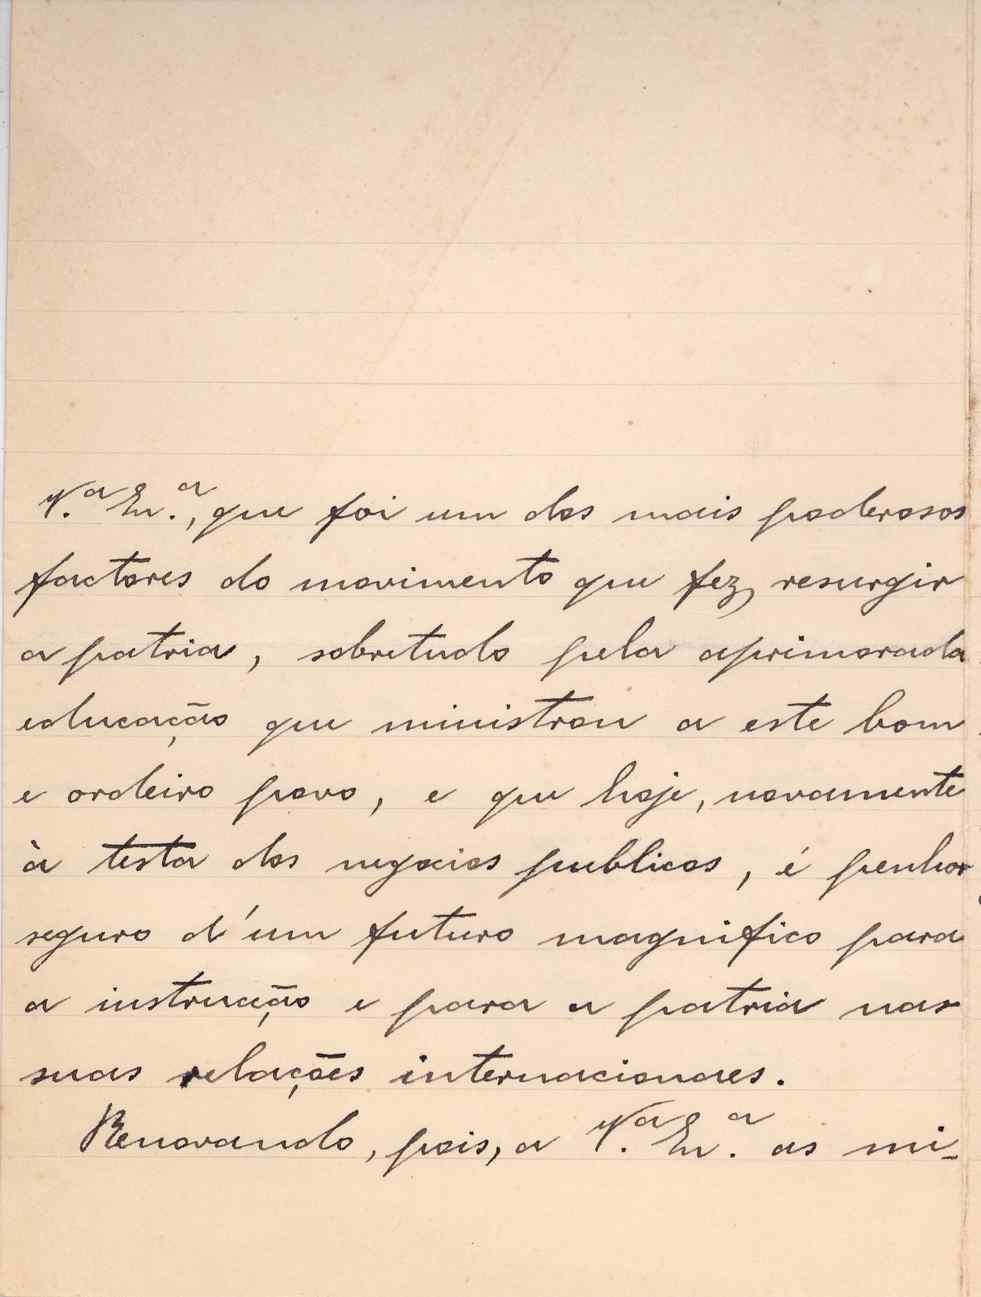 V.ª Ex.ª, que foi um dos mais poderosos
factores do movimento que fez resurgir
a patria, sobretudo pela aprimorada
educação que ministrou a este bom
e ordeiro povo, e que hoje, novamente
à testa dos negocios publicos, é penhor
seguro d'um futuro magnifico para
a instrucção e para a patria nas
suas relações internacionaes.
Renovando, pois, a V.ª Ex.ª as mi-